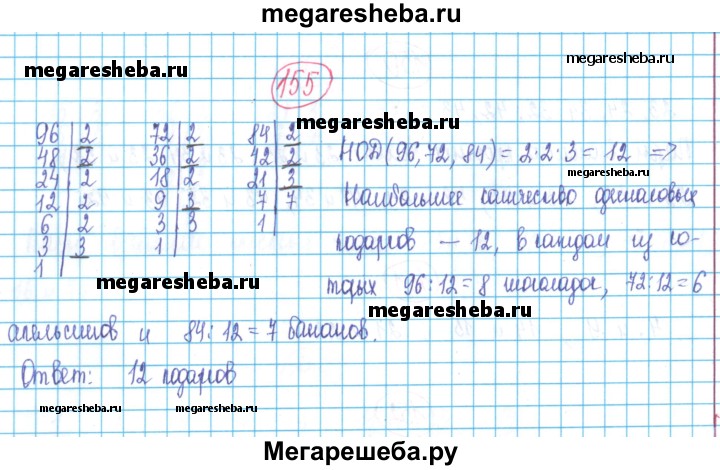 megaresheba.ru
megaresheba.ru
megaresheba.ru
155
96 | 2 72 | 2 84 | 2
megaresheba.ru
48 | 2 36 | 2 42 | 2 НОД(96, 72, 84) = 2·2·3 = 12 =>
24 | 2 18 | 2 21 | 3
megaresheba.ru
12 | 2 9 | 3 7 | 7 Наибольшее количество одинаковых
6 | 2 3 | 3 1 | подарков — 12, в каждом из ко-
3 | 3 1 |
1 | торых 96:12=8 шоколадок, 72:12=6
megaresheba.ru
megaresheba.ru
апельсинов и 84:12=7 бананов.
Ответ: 12 подарков
megaresheba.ru
megaresheba.ru
megaresheba.ru
Мегарешеба.ру